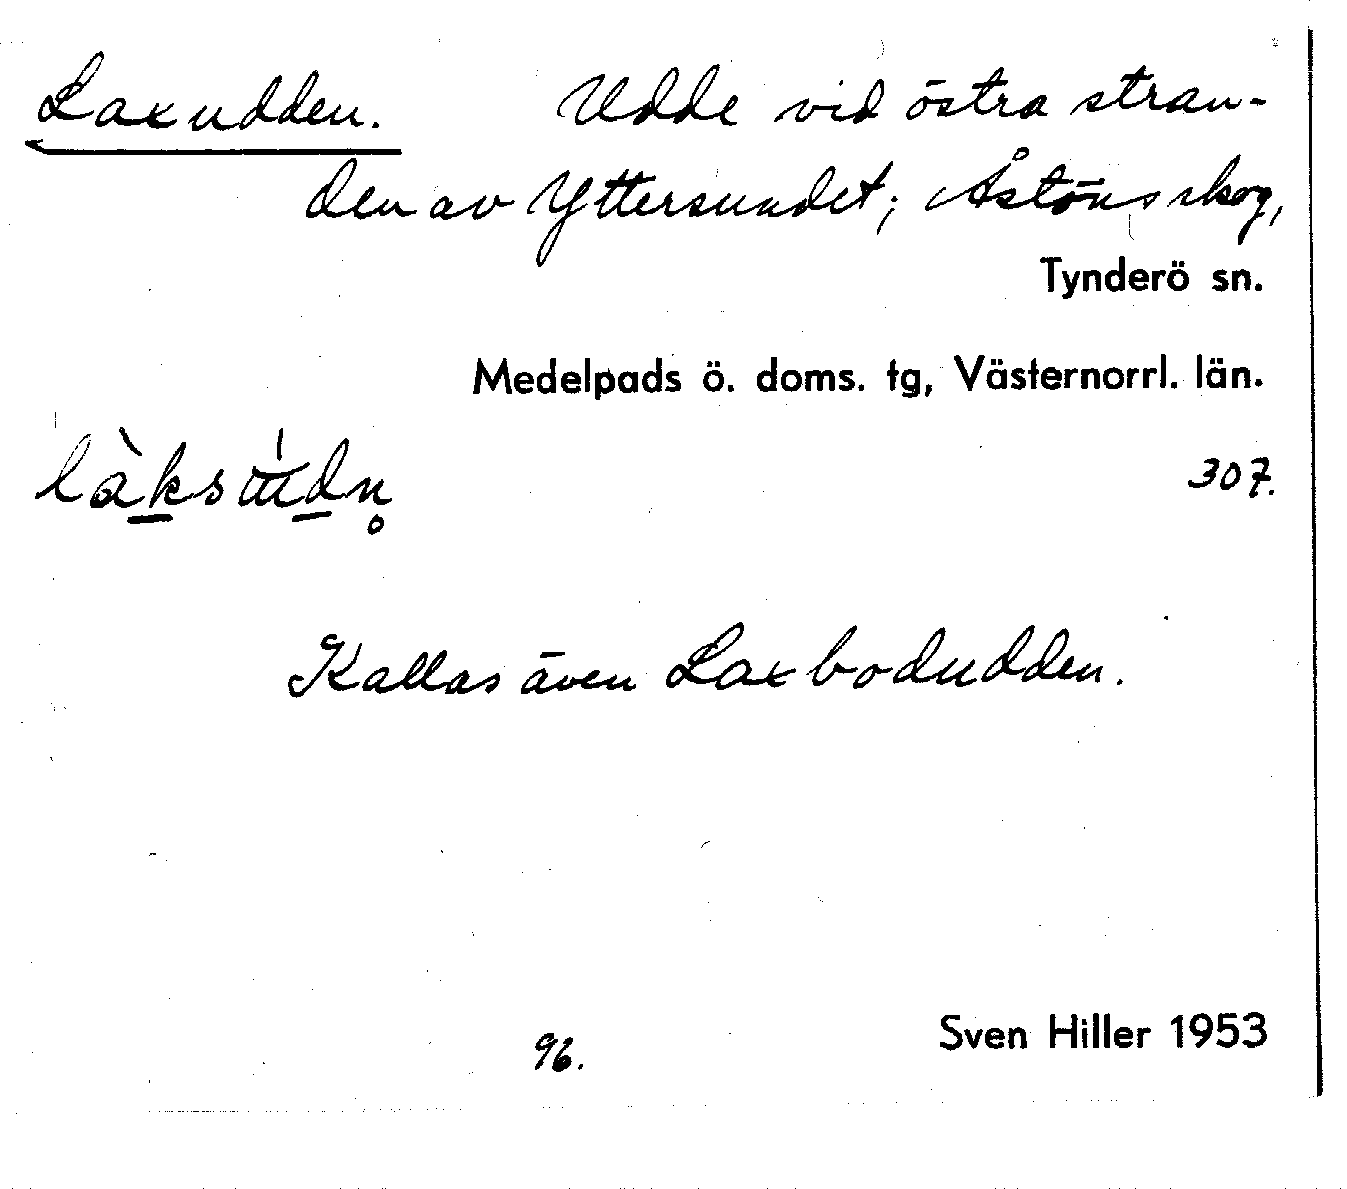 Laxudden. Udde vid östra stran-
den av Yttersundet; Åstöns skog,
Tynderö sn.
Medelpads ö. doms. tg, Västernorrl. län.
307.
Kallas även Laxbodudden.
Sven Hiller 1953
96.